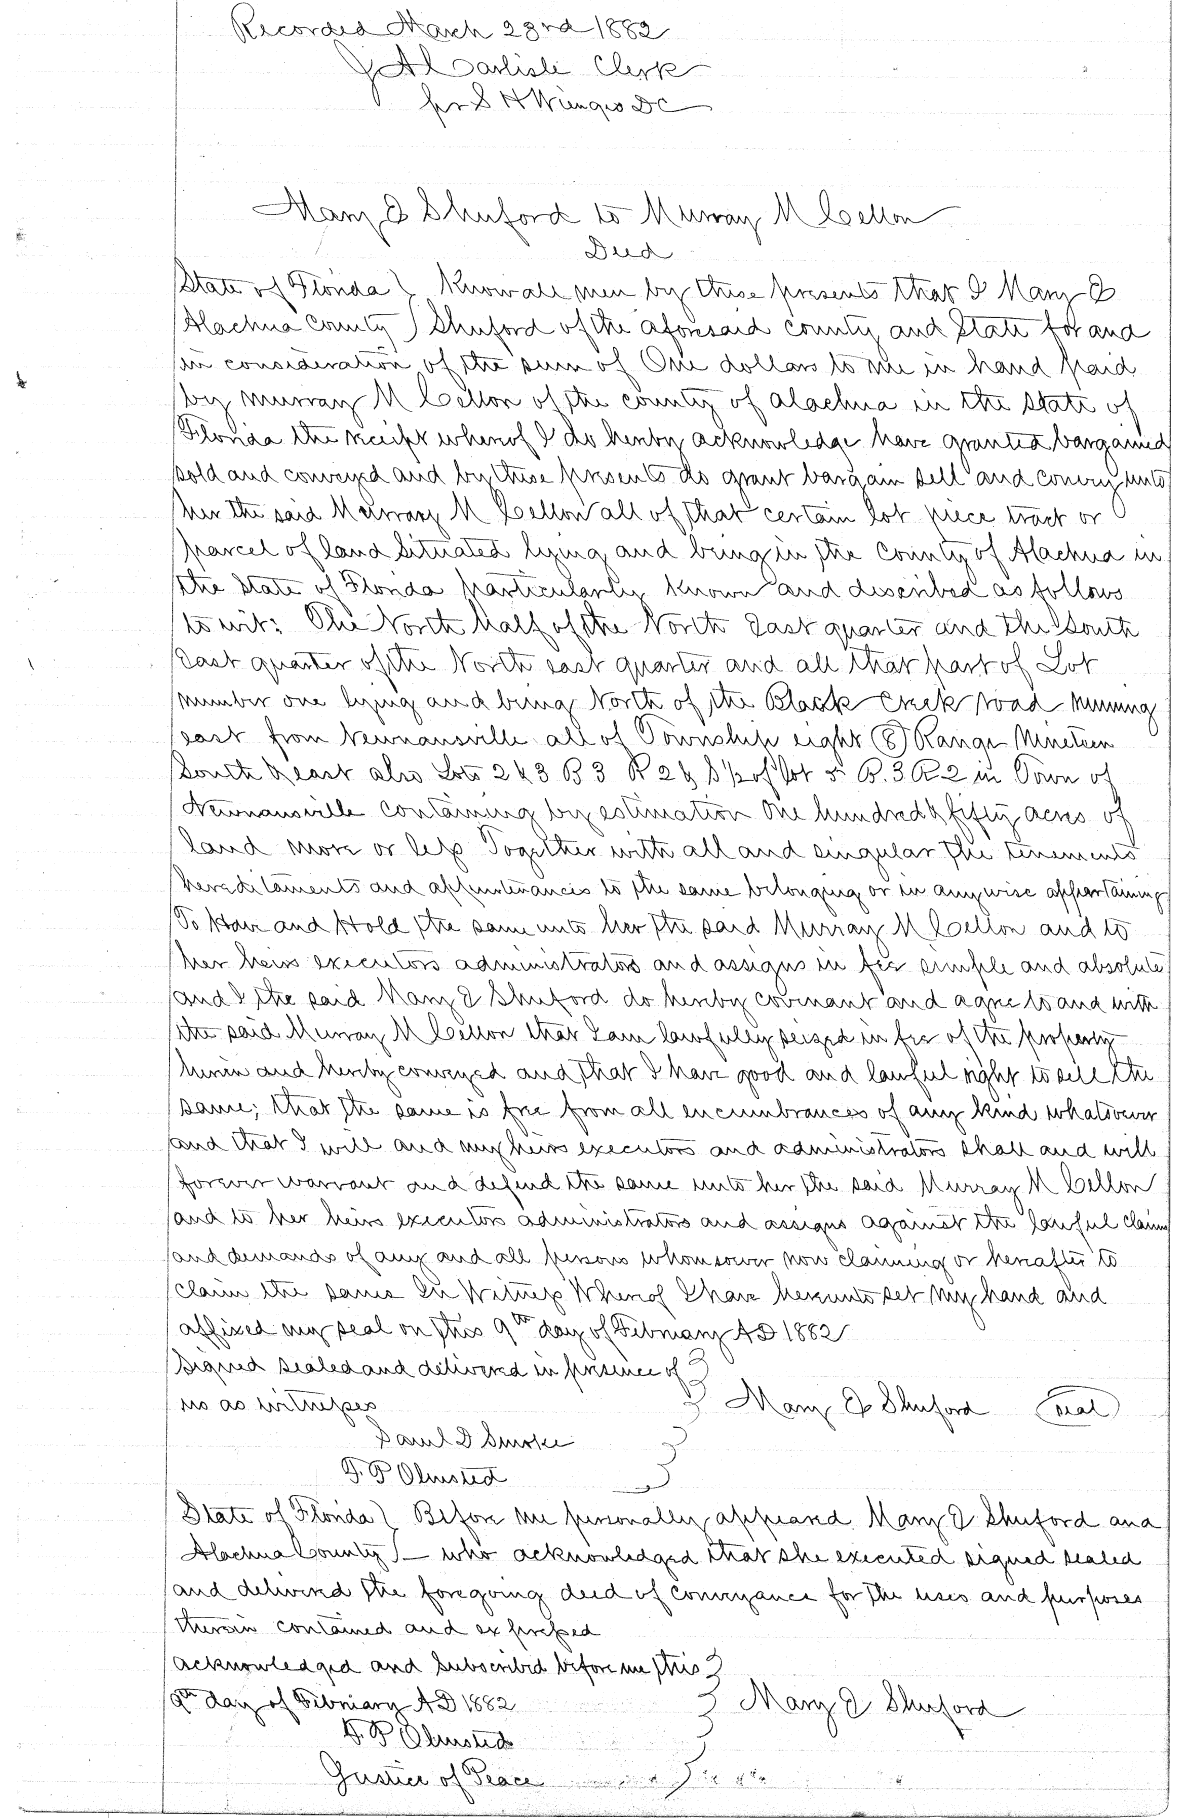 Recorded March 23rd 1882
J A Carlisle Clerk
for S H Wienges DC
Mary E Shuford to Murray M Cellon
Deed
State of Florida } Know all men by these presents that I Mary E
Alachua County } Shuford of the aforesaid county and State for and
in consideration of the sum of One dollars to me in hand paid
by Murray M Cellon of the county of Alachua in the State of
Florida the receipt wherof I do hereby acknowledge have granted bargained
sold and conveyed and by these presents do grant bargain sell and convey unto
her the said Murrary M Cellon all of that certain lot piece tract or
parcel of land Situated lying and being in the County of Alachua in
the State of Florida particularly known and described as follows
to wit: The North half of the North East quarter and the South
East quarter of the North east quarter and all that part of Lot
number one lying and being North of the Black Creek road running
east from Newnansville all of Township eight (8) Range Nineteen
South & east also Lots 2 & 3 B 3 R 2 & S 1/2 of lot 5 B. 3 R 2 in Town of
Newnansville containing by estimation One hundred & fifty acres of
land more or less Together with all and singular the tenements
hereditaments and appurtenances to the same belonging or in anywise appertaining
To Have and Hold the same unto her the said Murray M Cellon and to
her heirs executors administrators and assigns in fee simple and absolute
and I the said Mary E Shuford do hereby covenant and agree to and with
the said Murray M Cellon that I am lawfully seized in fee of the property
herein and hereby conveyed and that I have good and lawful right to sell the
same; that the same is free from all encumbrances of any kind whatsoever
and that I will and my heirs executors and administrators shall and will
forever warrant and defend the same unto her the said Murray M Cellon
and to her heirs executors administrators and assigns against the lawful claims
and demands of any and all persons whomsoever now claiming or hereafter to
claim the same In Witness Whereof I have hereunto set my hand and
affixed my seal on this 9th day of February AD 1882
Signed sealed and delivered in presence of
us as witnesses Mary E Shuford (seal)
Saml D Smoke
F. P Olmsted
State of Florida } Before me personally appeared Mary E Shuford and
Alachua County } — who acknowledged that she executed signed sealed
and delivered the foregoing deed of conveyance for the uses and purposes
therein contained and expressed
Acknowledged and Subscribed before me this
9th day of February AD 1882 Mary E Shuford
F. P Olmsted
Justice of Peace